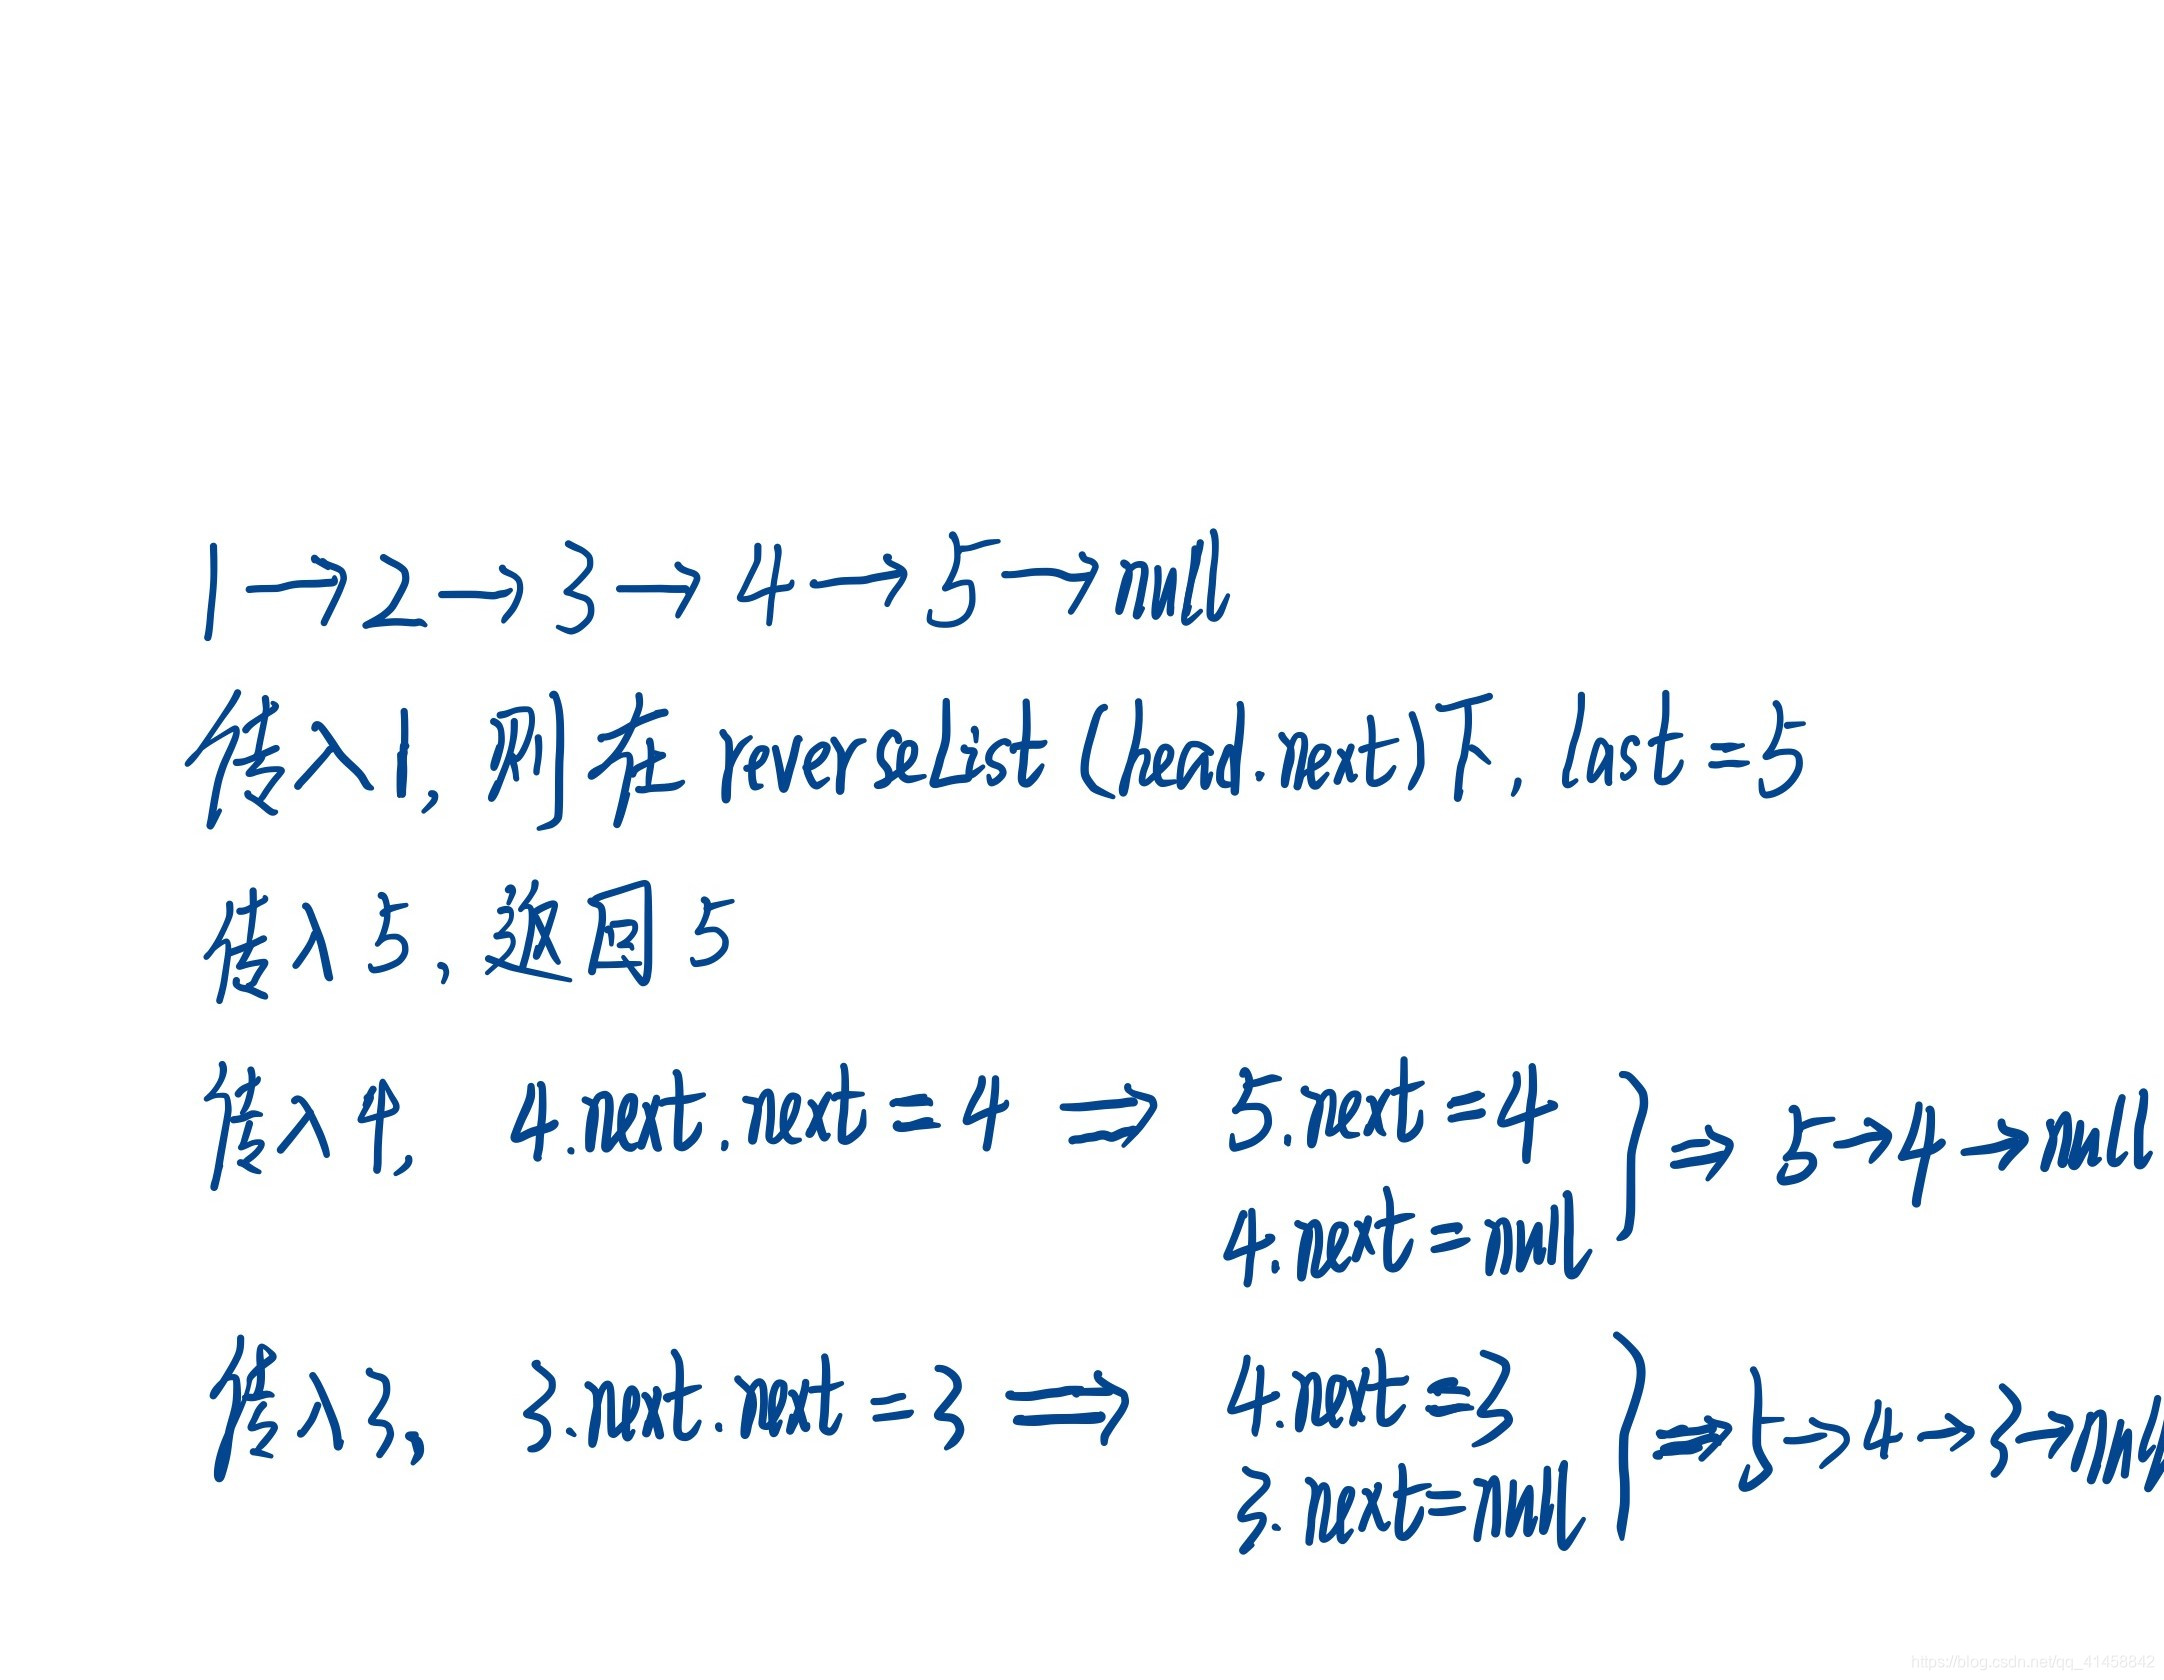 1→2→3→4→5→null
传入1,则在 reverselist(head.next)下, last=5
传入5,返回5
传入4, 4.next.next=4 ⇒ 5.next=4 } ⇒ 5→4→null
4.next=null
传入3, 3.next.next=3 ⇒ 4.next=3 } ⇒ 5→4→3→null
3.next=null
https://blog.csdn.net/qq_41458842